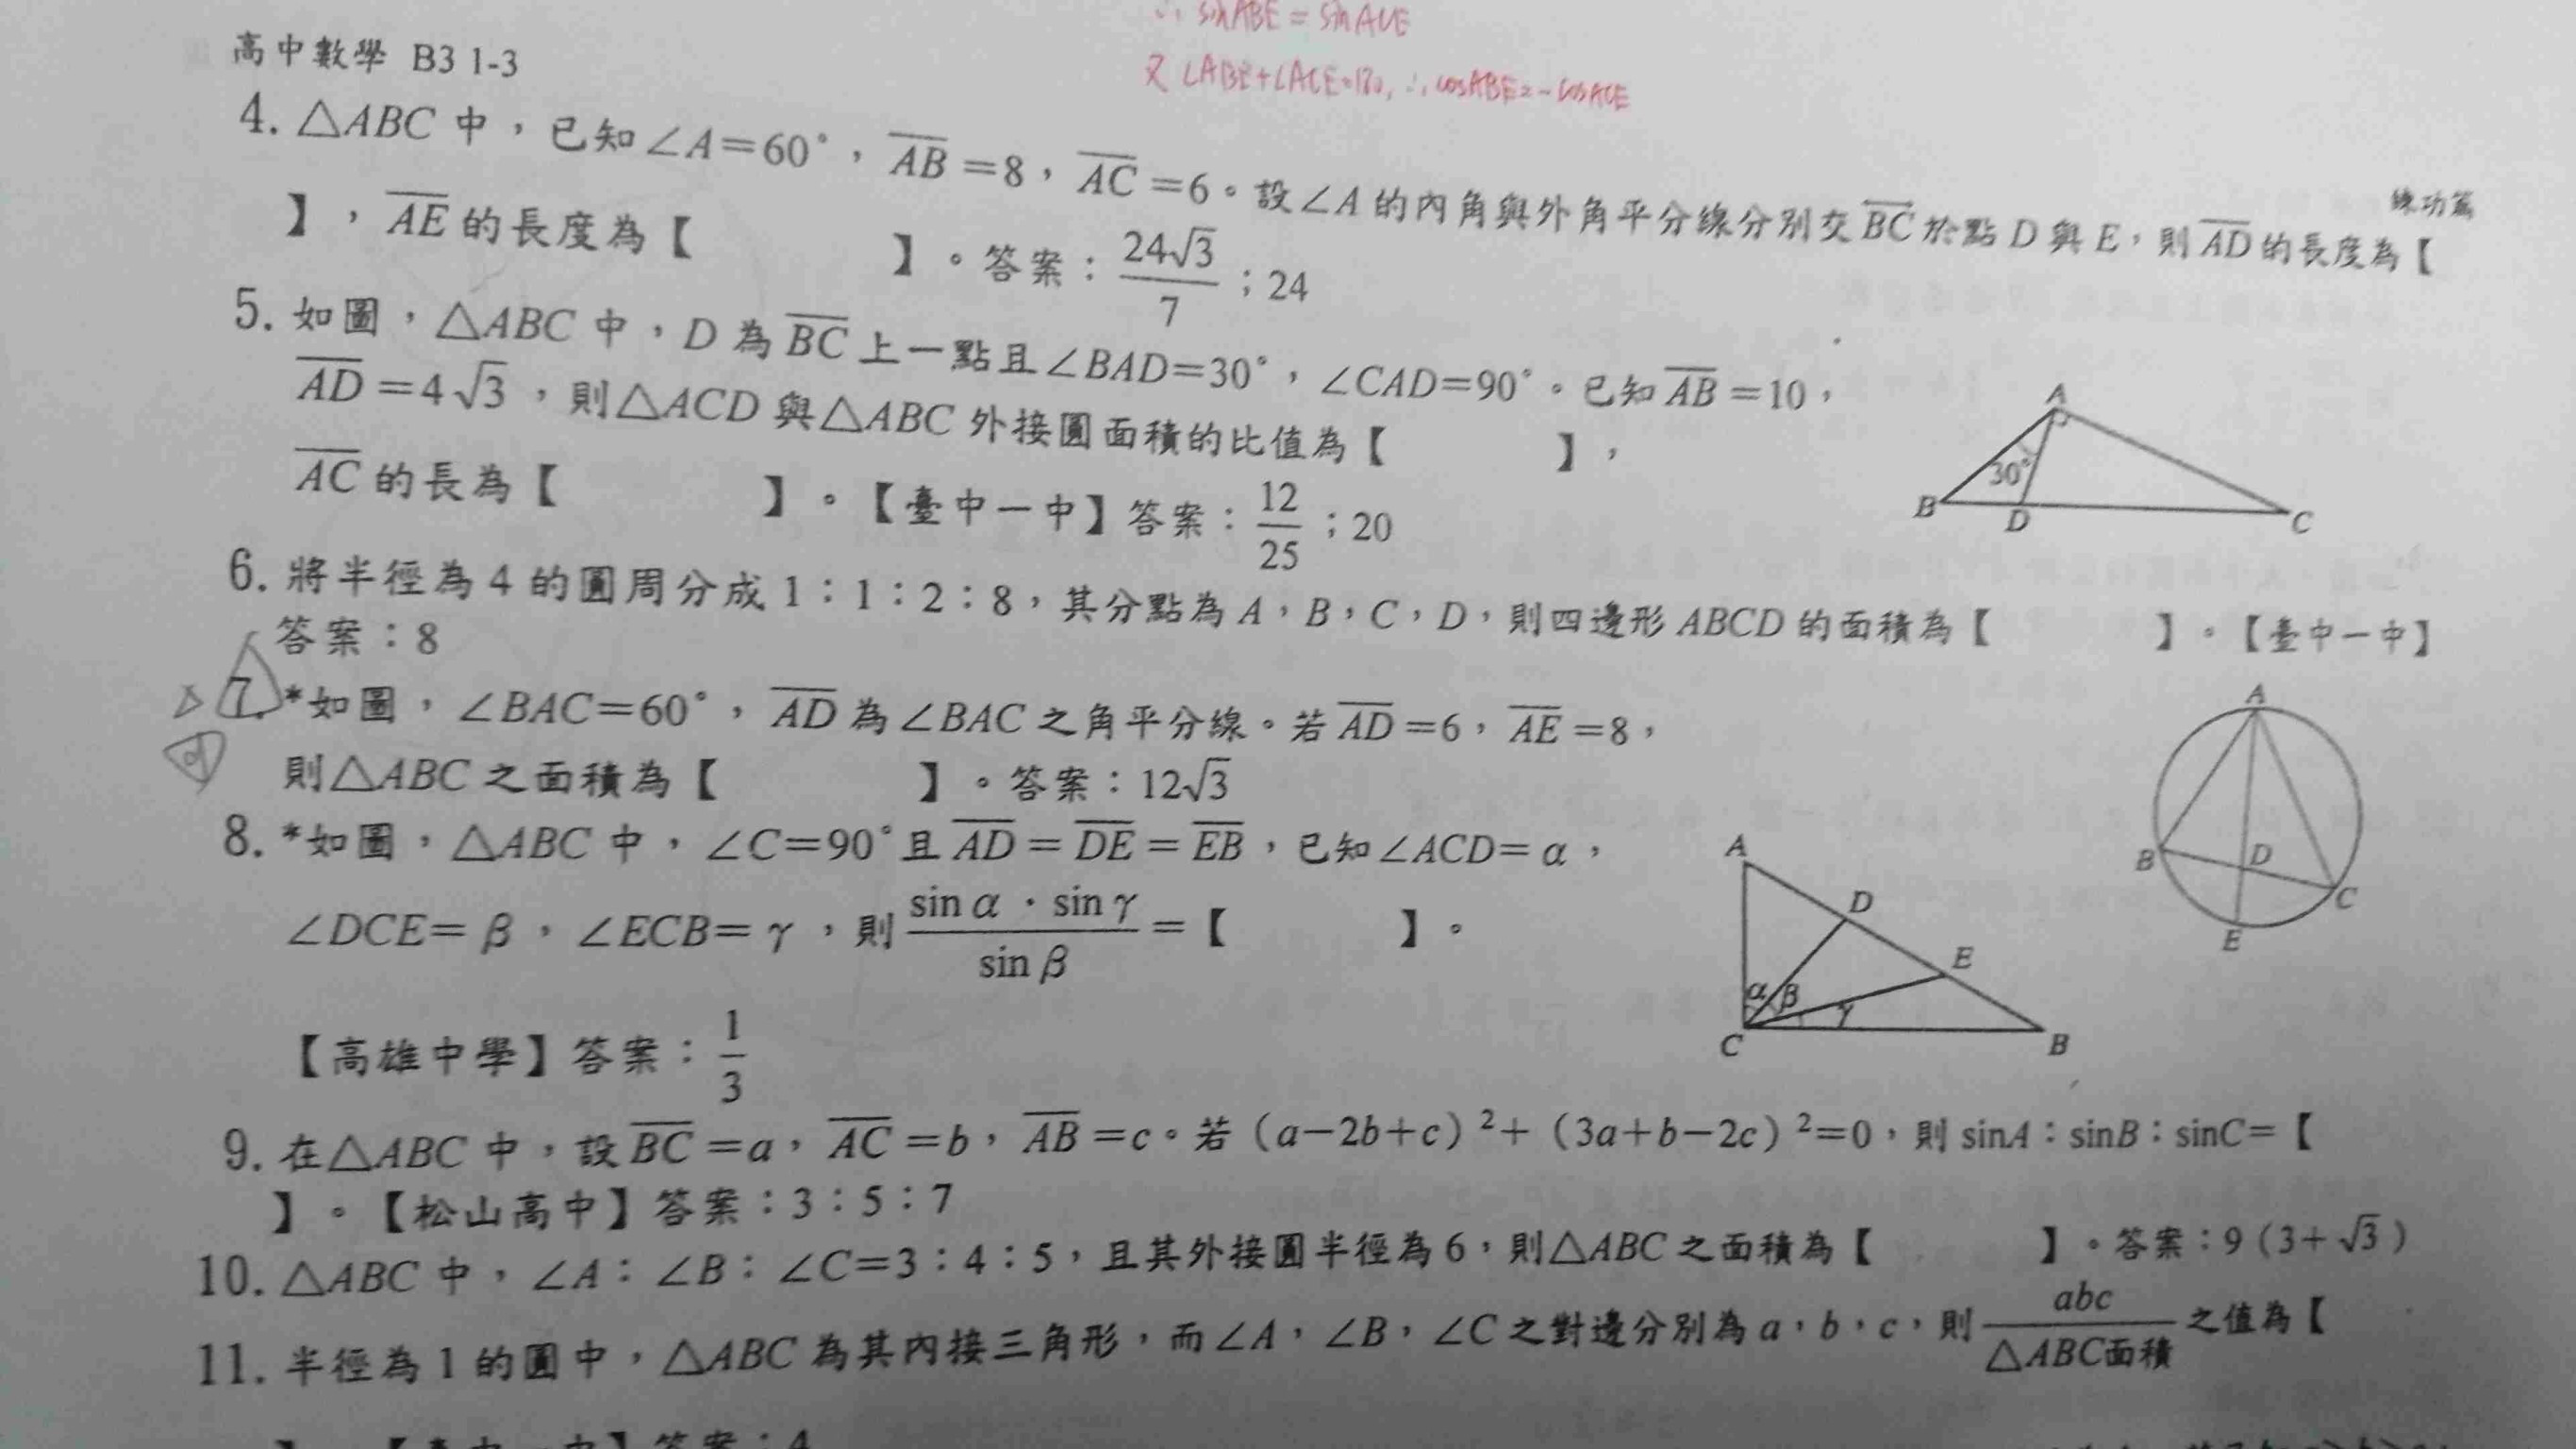 ∴ sinABE = sinACE
又 ∠ABE+∠ACE=180, ∴ cosABE=-cosACE
高中數學 B3 1-3
練功篇
4. △ABC 中，已知∠A=60°，AB=8，AC=6。設∠A 的內角與外角平分線分別交 BC 於點 D 與 E，則 AD 的長度為【
】，AE 的長度為【 】。答案：24√3/7；24
5. 如圖，△ABC 中，D 為 BC 上一點且∠BAD=30°，∠CAD=90°。已知 AB=10，
AD=4√3，則△ACD 與△ABC 外接圓面積的比值為【 】，
AC 的長為【 】。【臺中一中】答案：12/25；20
A
30°
B D C
6. 將半徑為 4 的圓周分成 1：1：2：8，其分點為 A，B，C，D，則四邊形 ABCD 的面積為【 】。【臺中一中】
答案：8
7. *如圖，∠BAC=60°，AD 為∠BAC 之角平分線。若 AD=6，AE=8，
則△ABC 之面積為【 】。答案：12√3
A
B D C
E
8. *如圖，△ABC 中，∠C=90°且 AD=DE=EB，已知∠ACD=α，
∠DCE=β，∠ECB=γ，則 sinα·sinγ/sinβ=【 】。
【高雄中學】答案：1/3
A
D
E
α β γ
C B
9. 在△ABC 中，設 BC=a，AC=b，AB=c。若（a−2b+c）²+（3a+b−2c）²=0，則 sinA：sinB：sinC=【
】。【松山高中】答案：3：5：7
10. △ABC 中，∠A：∠B：∠C=3：4：5，且其外接圓半徑為 6，則△ABC 之面積為【 】。答案：9（3+√3）
11. 半徑為 1 的圓中，△ABC 為其內接三角形，而∠A，∠B，∠C 之對邊分別為 a，b，c，則 abc/△ABC面積 之值為【
】。【臺中一中】答案：4